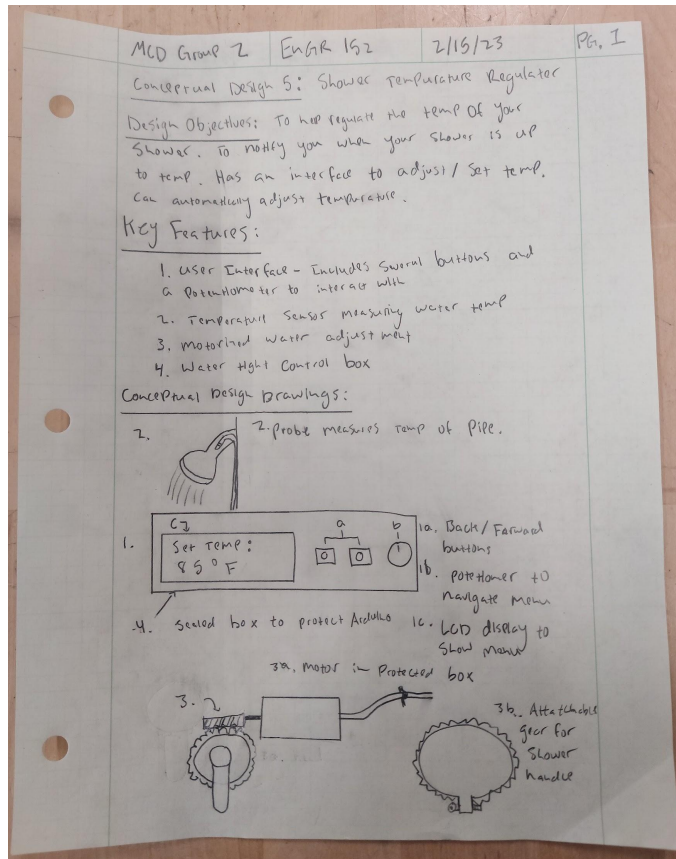 MCD Group 2 EnGR 152 2/15/23 PG. 1
Conceptual Design 5: Shower Tempurature Regulator
Design Objectives: To help regulate the temp of your
Shower. To notify you when your shower is up
to temp. Has an interface to adjust/set temp.
Can automatically adjust tempurature.
Key Features:
1. User Interface - Includes several buttons and
a Potentiometer to interact with
2. Temperature Sensor measuring water temp
3. Motorized water adjustment
4. Water tight Control box
Conceptual Design Drawings:
2. 2. Probe measures temp of Pipe.
C a b 1a. Back/Forward
1. Set Temp: buttons
85° F 1b. potetiomer to
navigate menu
4. Sealed box to protect Arduino 1c. LCD display to
Show menu
3a. motor in Protected box
3. 3b. Attatchable
gear for
Shower
handle